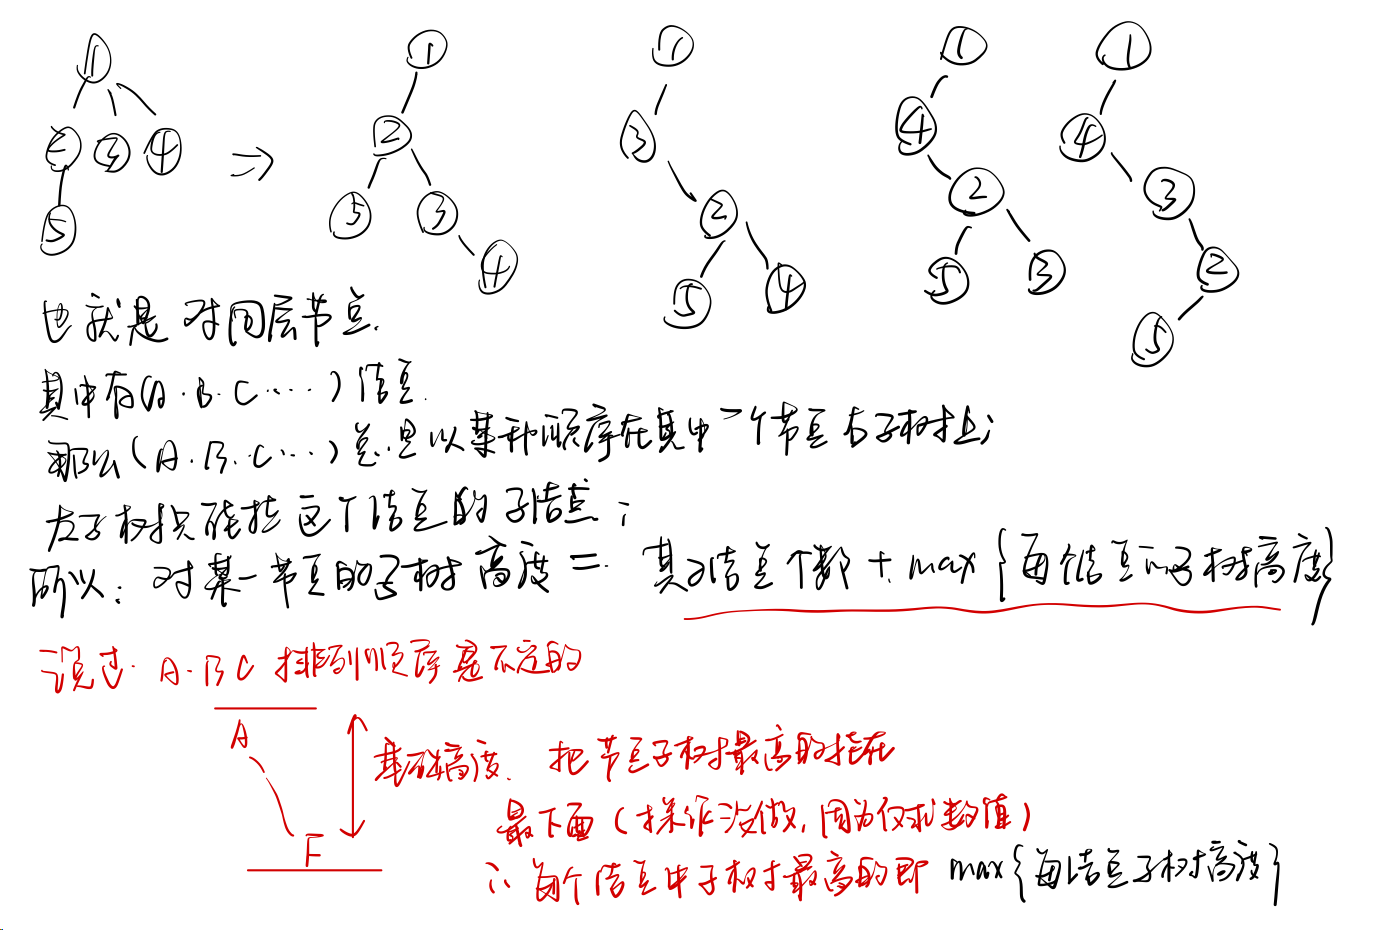 1 1 1 1 1
2 3 4 ⇒ 2 3 4 4
5 5 3 2 2 3
4 5 4 5 3 2
5
也就是 对同层节点.
其中有(A.B.C....)结点.
那么(A.B.C...)总是以某种顺序在其中一个节点右子树上;
左子树只能挂这个结点的子结点;
所以: 对某一节点的子树高度 = 其子结点个数 + max{每个结点的子树高度}
说过. A.B C 排列顺序是不定的
A
基础高度. 把节点子树最高的挂在
最下面 (操作没做, 因为仅求数值)
F
∴ 每个结点中子树最高的即 max{每结点子树高度}